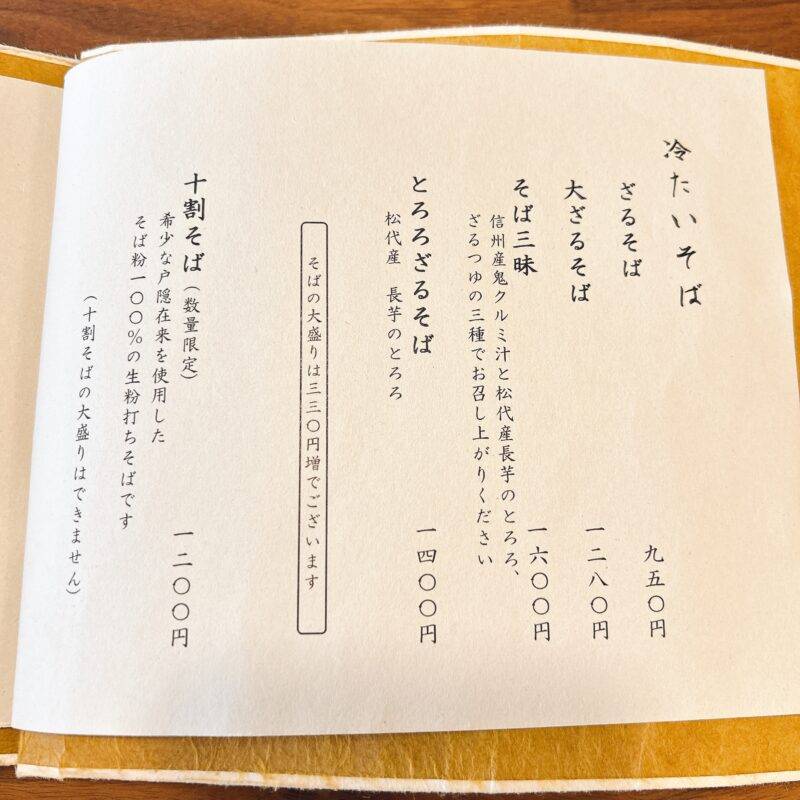 冷たいそば
ざるそば
九五〇円
大ざるそば
一二八〇円
そば三昧
一六〇〇円
信州産鬼クルミ汁と松代産長芋のとろろ、
ざるつゆの三種でお召し上がりください
とろろざるそば
一四〇〇円
松代産 長芋のとろろ
そばの大盛りは三三〇円増でございます
十割そば(数量限定)
一二〇〇円
希少な戸隠在来を使用した
そば粉一〇〇%の生粉打ちそばです
(十割そばの大盛りはできません)